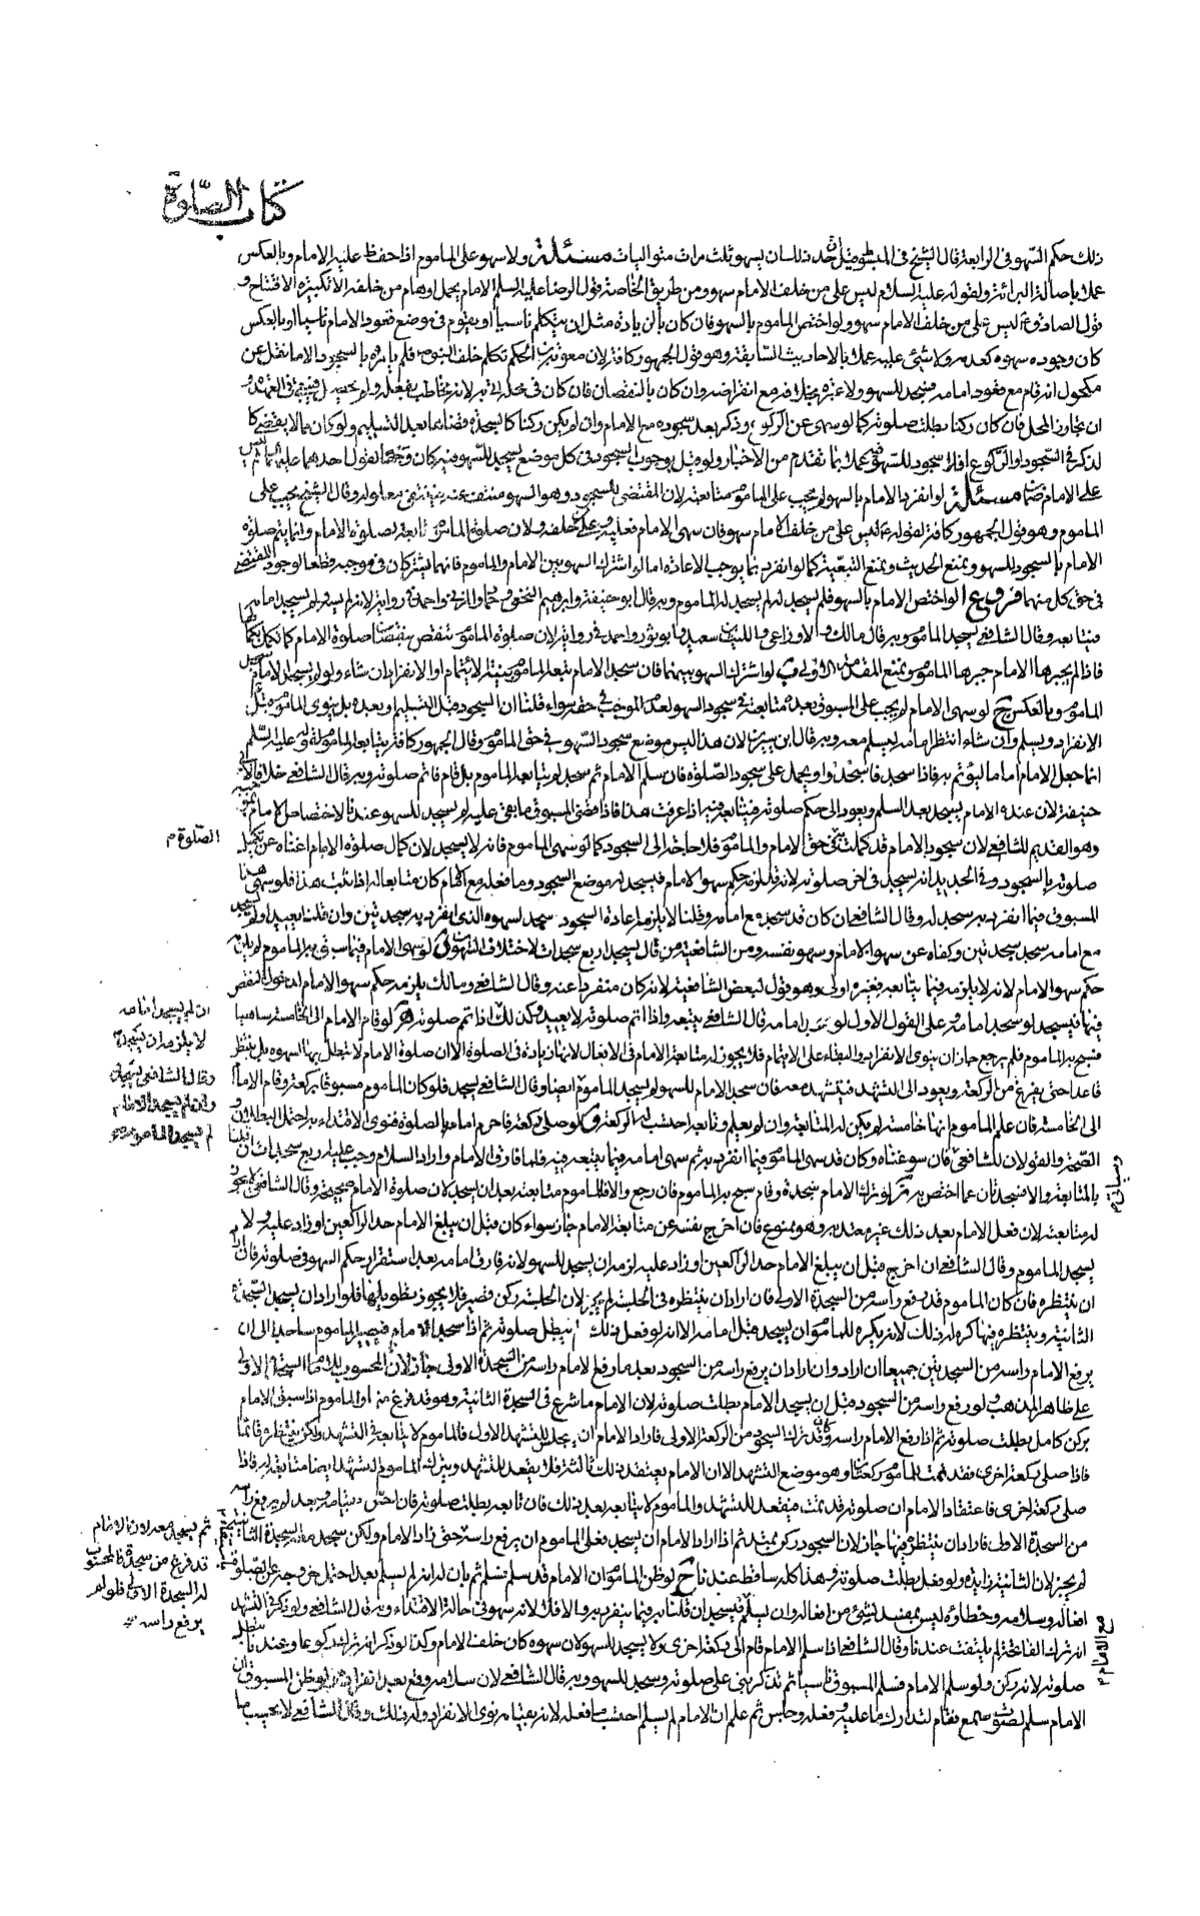 كتاب الصلوة
ذلك حكم السهو في الرابعة قال الشيخ في المبسوط قيل حد ذلك ان يسهو ثلث مرات متواليات مسئلة ولا سهو على الماموم اذا حفظ عليه الامام وبالعكس
عملا باصالة البرائة ولقوله عليه السلام ليس على من خلف الامام سهو ومن طريق الخاصة قول الرضا عليه السلم الامام يحمل اوهام من خلفه الا تكبيرة الافتتاح و
قول الصادق ع ليس على من خلف الامام سهو ولو اختص الماموم بالسهو فان كان بالزيادة مثل ان يتكلم ناسيا او يقوم في موضع قعود الامام ناسيا او بالعكس
كان وجوده سهوه كعدمه ولا شئ عليه عملا بالاحاديث السابقة وهو قول الجمهور كافة لان معوية بن الحكم تكلم خلف النبي ص فلم يامره بالسجود الا ما نقل عن
مكحول انه قام مع قعود امامه فسجد للسهو ولا عبرة بخلافه مع انقراضه وان كان بالنقصان فان كان في محله اتى به لانه مخاطب بفعله ولم يحصل فيبقى في العهدة
ان تجاوز المحل فان كان ركنا بطلت صلوته كما لو سهى عن الركوع وذكر بعد سجوده مع الامام وان لم يكن ركنا كالسجدة قضاها بعد التسليم ولو كان مما لا يقضى كا
لذكر في السجود او الركوع فلا سجود للسهو فيه عملا بما تقدم من الاخبار ولو قيل بوجوب السجود في كل موضع يسجد للسهو فيه كان وجها لقول احدهما عليهما السلم ليس
على الامام ضمان مسئلة لو انفرد الامام بالسهو لم يجب على الماموم متابعته لان المقتضى للسجود وهو السهو منتف عنه فينتفى معلوله وقال الشيخ يجب على
الماموم وهو قول الجمهور كافة لقوله ع ليس على من خلف الامام سهو فان سهى الامام فعليه وعلى من خلفه ولان صلوة الماموم تابعة لصلوة الامام وانما يتم صلوة
الامام بالسجود للسهو ويمنع الحديث ويمنع التبعية كما لو انفرد بما يوجب الاعادة اما لو اشترك السهو بين الامام والماموم فانهما يشتركان في موجبه قطعا لوجود المقتضى
في حق كل منهما فروع ا لو اختص الامام بالسهو فلم يسجد له لم يسجد له الماموم وبه قال ابو حنيفة وابرهيم النخعي وحماد والمزني واحمد في رواية لانه لم يسه ولم يسجد امامه
فيتابعه وقال الشافعي يسجد الماموم وبه قال مالك والاوزاعي والليث بن سعد وابو ثور واحمد في رواية لان صلوة الماموم تنقص بنقصان صلوة الامام كما تكمل بكمالها
فاذا لم يجبرها الامام جبرها الماموم ويمنع المقدمة الاولى ب لو اشترك السهو بينهما فان سجد الامام تبعه الماموم بنية الايتمام او الانفراد ان شاء ولو لم يسجد الامام سجد
الماموم وبالعكس ج لو سهى الامام لم يجب على المسبوق بعده متابعته في سجود السهو لعدم الموجب في حقه سواء قلنا ان السجود قبل التسليم او بعده بل ينوى الماموم
الانفراد ويسلم وان شاء انتظر امامه ليسلم معه وبه قال ابن سيرين لان هذا ليس موضع سجود السهو في حق الماموم وقال الجمهور كافة يتابعه الماموم لقوله عليه السلم
انما جعل الامام اماما ليؤتم به فاذا سجد فاسجدوا ويحمل على سجود الصلوة فان سلم الامام ثم سجد لم يتابعه الماموم بل قام فاتم صلوته وبه قال الشافعي خلافا لابي
حنيفة لان عنده الامام يسجد بعد السلم ويعود الى حكم صلوته فيتابعه فيه اذا عرفت هذا فاذا قضى المسبوق ما بقى عليه لم يسجد للسهو عندنا لاختصاص الامام بموجبه
وهو القديم للشافعي لان سجود الامام قد كملت به في حق الامام والماموم فلا حاجة الى السجود كما لو سهى الماموم فانه لا يسجد لان كمال صلوة الامام اغناه عن تكميل
الصلوة م
صلوته بالسجود وفي الجديد انه يسجد في اخر صلوته لانه قد لزمه حكم سهو الامام فيسجد له موضع السجود وما فعله مع الامام كان متابعا له اذا ثبت هذا فلو سهى هذا
المسبوق فيما انفرد به سجد له وقال الشافعي ان كان قد سجد مع امامه وقلنا لا يلزمه اعادة السجود سجد لسهوه الذي انفرد به سجدتين وان قلنا يعيد او لم يسجد
مع امامه سجد سجدتين وكفاه عن سهو الامام وسهو نفسه ومن الشافعية من قال يسجد اربع سجدات لاختلاف السهوين د لو سهى الامام فيما سبق به الماموم لم يلزمه
حكم سهو الامام لانه لا يلزمه فيما يتابعه فيه فغيره اولى وهو قول لبعض الشافعية لانه كان منفردا عنه وقال الشافعي ومالك يلزمه حكم سهو الامام لدخول النقص
ان لم يسجد امامه
لا يلزمه ان يسجد
وقال الشافعي يسجد
وان لم يسجد الامام
لم يسجد الماموم
فيها فيسجد لو سجد امامه وعلى القول الاول لو سجد امامه قال الشافعي يتبعه واذا اتم صلوته لا يعيد وكذلك اذا اتم صلوته ه لو قام الامام الى الخامسة ساهيا
فسبح به الماموم فلم يرجع جاز ان ينوى الانفراد والبقاء على الايتمام فلا يجوز له متابعة الامام في الافعال لانها زيادة في الصلوة الا ان صلوة الامام لا تبطل بها لسهوه بل ينتظر
قاعدا حتى يفرغ من الركعة ويعود الى التشهد فيتشهد معه فان سجد الامام للسهو لم يسجد الماموم ايضا وقال الشافعي يسجد فلو كان الماموم مسبوقا بركعة وقام الامام
الى الخامسة فان علم الماموم انها خامسة لم يكن له المتابعة وان لم يعلم وتابعه احتسب له الركعة و لو صلى ركعة فاحرم امام بالصلوة فنوى الاقتداء به احتمل البطلان و
الصحة والقولان للشافعي فان سوغناه وكان قد سهى الماموم فيما انفرد به ثم سهى امامه فيما يتبعه فيه فلما فارق الامام واراد السلام وجب عليه اربع سجدات ان قلنا
وسياتي م
بالمتابعة والا فسجدتان عما اختص به ز لو ترك الامام سجدة وقام سبح به الماموم فان رجع والا فللماموم متابعته بعد ان يسجد لان صلوة الامام صحيحة وقال الشافعي لا يجوز
له متابعته لان فعل الامام بعد ذلك غير معتد به وهو ممنوع فان اخرج نفسه عن متابعة الامام جاز سواء كان قبل ان يبلغ الامام حد الراكعين او زاد عليه ولا
يسجد الماموم وقال الشافعي ان اخرج قبل ان يبلغ الامام حد الراكعين او زاد عليه لزمه ان يسجد للسهو لانه فارق امامه بعد استقرار حكم السهو في صلوته فان اراد
ان ينتظره فان كان الماموم قد رفع راسه من السجدة الاولى فان اراد ان ينتظره في الجلسة لم يجز لان الجلسة ركن قصير فلا يجوز تطويلها فلو اراد ان يسجد السجدة
الثانية وينتظره فيها كره له ذلك لانه يكره للماموم ان يسجد قبل امامه الا انه لو فعل ذلك لم يبطل صلوته ثم اذا سجد الامام فيصير الماموم ساجدا الى ان
يرفع الامام راسه من السجدتين جميعا ان اراد وان اراد ان يرفع راسه من السجود بعد ما رفع الامام راسه من السجدة الاولى جاز لان المحسوب للامام السجدة الاولى
على ظاهر المذهب ولو رفع راسه من السجود قبل ان يسجد الامام بطلت صلوته لان الامام ما شرع في السجدة الثانية وهو قد فرغ منها والماموم اذا سبق الامام
بركن كامل بطلت صلوته ثم اذا رفع الامام راسه وقد كان ترك السجود من الركعة الاولى فاراد الامام ان يجلس للتشهد الاول فالماموم لا يتابعه في التشهد ولكن ينتظره قائما
فاذا صلى ركعة اخرى فقد تمت للماموم ركعتان وهو موضع التشهد الا ان الامام يعتقد ذلك ثالثة فلا يقعد للتشهد ويترك الماموم التشهد ايضا متابعة له فاذا
صلى ركعة اخرى فاعتقاد الامام ان صلوته قد تمت فيقعد للتشهد والماموم لا يتابعه بعد ذلك فان تابعه بطلت صلوته فان احس بقيامه وبعد لم يرفع راسه
ثم يسجد معه لان الامام
قد فرغ من سجدة فالمحسوب
له السجدة الاولى فلو لم
يرفع راسه
من السجدة الاولى فاراد ان ينتظره فيها جاز لان السجود ركن يمتد ثم اذا اراد الامام ان يسجد فعلى الماموم ان يرفع راسه حتى زاد الامام ولكن سجد معه السجدة الثانية
لم يجز لان الثانية زايدة ولو فعل بطلت صلوته وهذا كله ساقط عندنا ح لو ظن الماموم ان الامام قد سلم فسلم ثم بان له انه لم يسلم بعد احتمل خروجه عن الصلوة
افعاله وسلامه وخطاؤه ليس بمفسد لشئ من افعاله وان يسلم فيسجد ان قلنا به فيما ينفرد به والا فلا لانه سهو في حالة الاقتداء وبه قال الشافعي ولو ذكر في التشهد
مع الامام م
انه ترك الفاتحة لم يلتفت عندنا وقال الشافعي اذا سلم الامام قام الى ركعة اخرى ولا يسجد للسهو لان سهوه كان خلف الامام وكذا لو ذكر انه ترك ركوعا وعندنا تبطل
صلوته لانه ركن ولو سلم الامام فسلم المسبوق ناسيا ثم تذكر بنى على صلوته وسجد للسهو وبه قال الشافعي لان سلامه وقع بعد انفراده ولو ظن المسبوق ان
الامام سلم لصوت سمع فقام لتدارك ما عليه وفعله وجلس ثم علم ان الامام لم يسلم احتسب ما فعله لانه بقيامه نوى الانفراد وله ذلك وقال الشافعي لا يحسب ما